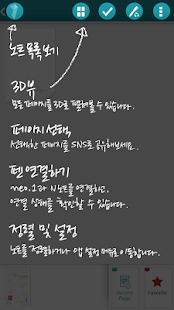 노트 목록 보기
3D뷰
모든 페이지를 3D로 펼쳐볼 수 있습니다.
페이지 선택,
선택한 페이지를 SNS로 공유해보세요.
펜 연결하기
neo.1과 N노트를 연결하고,
연결 상태를 확인할 수 있습니다.
정렬 및 설정
노트를 정렬하거나 앱 설정 메뉴로 이동합니다.
Recent
Page
Favorite